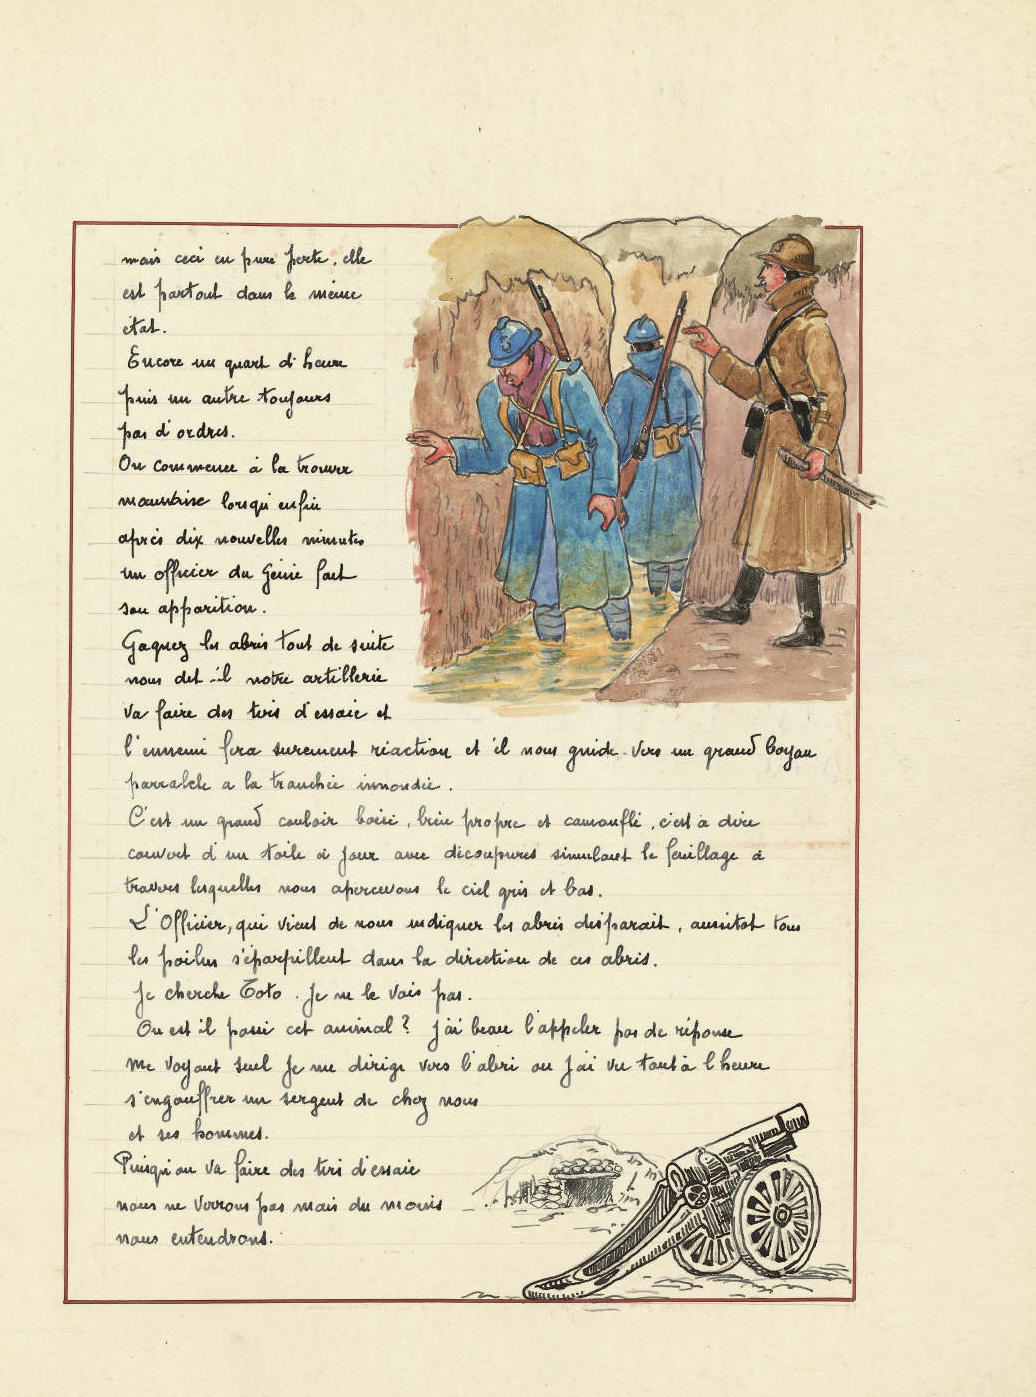 mais ceci en pure perte, elle
est partout dans le même
état.
Encore un quart d'heure
puis un autre toujours
pas d'ordres.
On commence à la trouver
mauvaise lorsqu'enfin
après dix nouvelles minutes
un officier du Génie fait
son apparition.
Gagnez les abris tout de suite
nous dit-il notre artillerie
va faire des tirs d'essaie et
l'ennemi fera surement réaction et il nous guide vers un grand boyau
parralele a la tranchée innondée.
C'est un grand couloir boisé, bien propre et camouflé, c'est à dire
couvert d'un toile à jour avec découpures simulant le feuillage à
travers lesquelles nous apercevons le ciel gris et bas.
L'Officier, qui vient de nous indiquer les abris disparait, aussitot tous
les poilus s'éparpillent dans la direction de ces abris.
Je cherche Toto. Je ne le vois pas.
Ou est il passé cet animal? J'ai beau l'appeler pas de réponse
me voyant seul je me dirige vers l'abri ou j'ai vu tout à l'heure
s'engouffrer un sergent de chez nous
et ses hommes.
Puisqu'on va faire des tirs d'essaie
nous ne verrons pas mais du moins
nous entendrons.